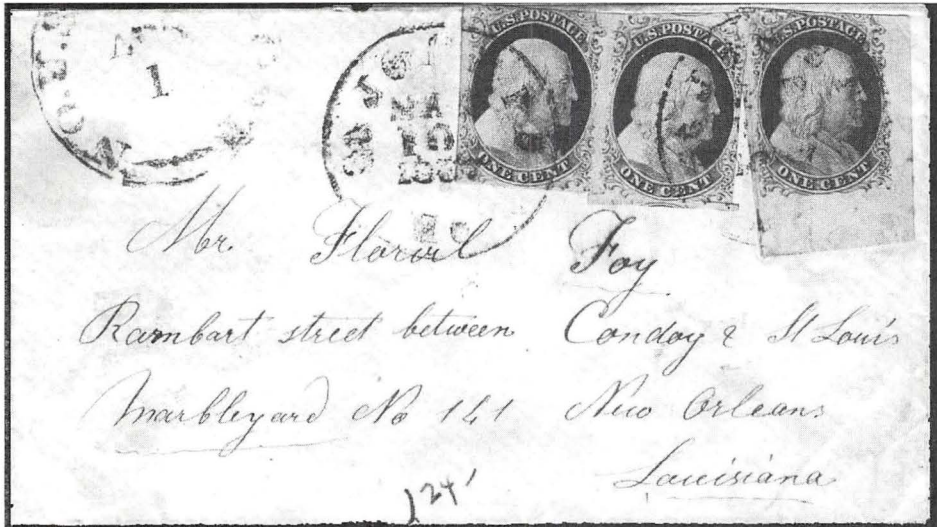 1
U.S.POSTAGE
ONE CENT
U.S.POSTAGE
ONE CENT
U.S.POSTAGE
ONE CENT
Mr. Florvil Foy
Rambart street between Conday & St Louis
Marbleyard No 141 New Orleans
Louisiana
124'